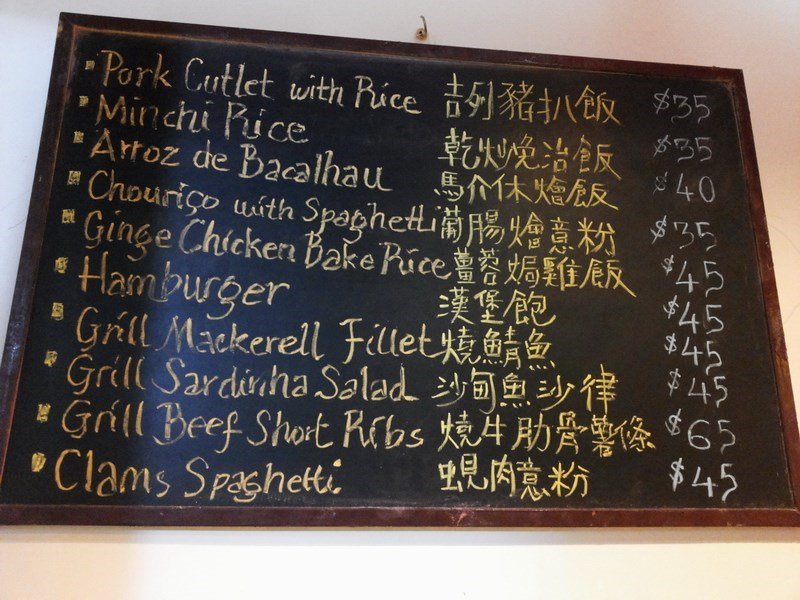 Pork Cutlet with Rice 吉列豬扒飯 $35
Minchi Rice 乾炒免治飯 $35
Arroz de Bacalhau 馬介休燴飯 $40
Chouriço with Spaghetti 葡腸燴意粉 $35
Ginge Chicken Bake Rice 薑蓉焗雞飯 $45
Hamburger 漢堡飽 $45
Grill Mackerell Fillet 燒鯖魚 $45
Grill Sardinha Salad 沙甸魚沙律 $45
Grill Beef Short Ribs 燒牛肋骨薯條 $65
Clams Spaghetti 蜆肉意粉 $45